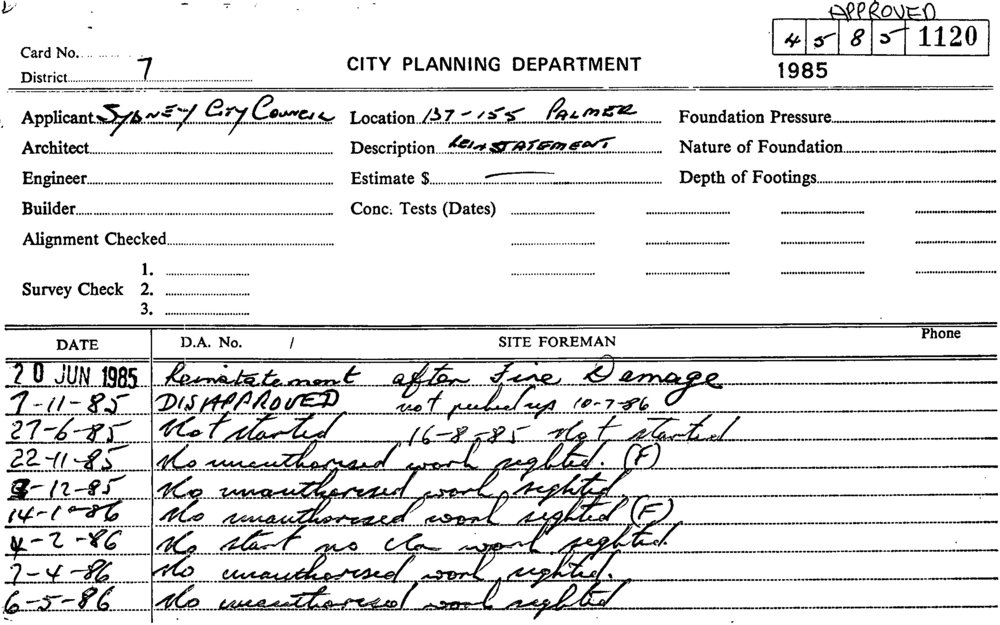 APPROVED
Card No.
4 5 8 5 1120
District 7
CITY PLANNING DEPARTMENT
1985
Applicant SYDNEY CITY COUNCIL Location 137-155 PALMER Foundation Pressure
Architect Description REINSTATEMENT Nature of Foundation
Engineer Estimate $ — Depth of Footings
Builder Conc. Tests (Dates)
Alignment Checked
1.
Survey Check 2.
3.
DATE D.A. No. / SITE FOREMAN Phone
20 JUN 1985 Reinstatement after Fire Damage
7-11-85 DISAPPROVED not picked up 10-7-86
27-6-85 Not started 16-8-85 Not started
22-11-85 No unauthorised work sighted. (F)
-12-85 No unauthorised work sighted
14-1-86 No unauthorised work sighted (F)
4-2-86 No start no work sighted.
7-4-86 No unauthorised work sighted.
6-5-86 No unauthorised work sighted